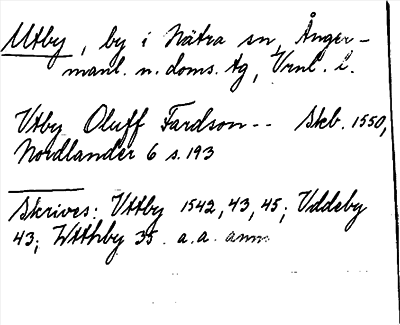 Utby, by i Nätra sn, Ånger-
manl. n. doms. tg, Vrnl. l.
Vtby Oluff Fardson -- Skb. 1550,
Nordlander 6 s. 193
Skrives: Vttby 1542, 43, 45; Vddeby
43; Wtthby 35. a. a. anm